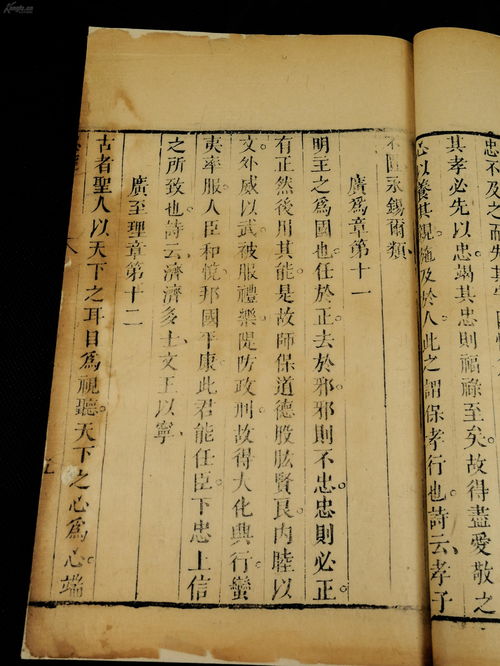 忠不及之而失其
其孝必先以忠竭其忠則福祿至矣故得盡愛敬之
心以養其親施及於人此之謂保孝行也詩云孝子
不匱永錫爾類
廣為章第十一
明主之為國也任於正去於邪邪則不忠忠則必正
有正然後用其能是故師保道德股肱賢良內睦以
文外威以武被服禮樂隄防政刑故得大化興行蠻
夷率服人臣和悅邦國平康此君能任臣下忠上信
之所致也詩云濟濟多士文王以寧
廣至理章第十二
古者聖人以天下之耳目為視聽天下之心為心端
五